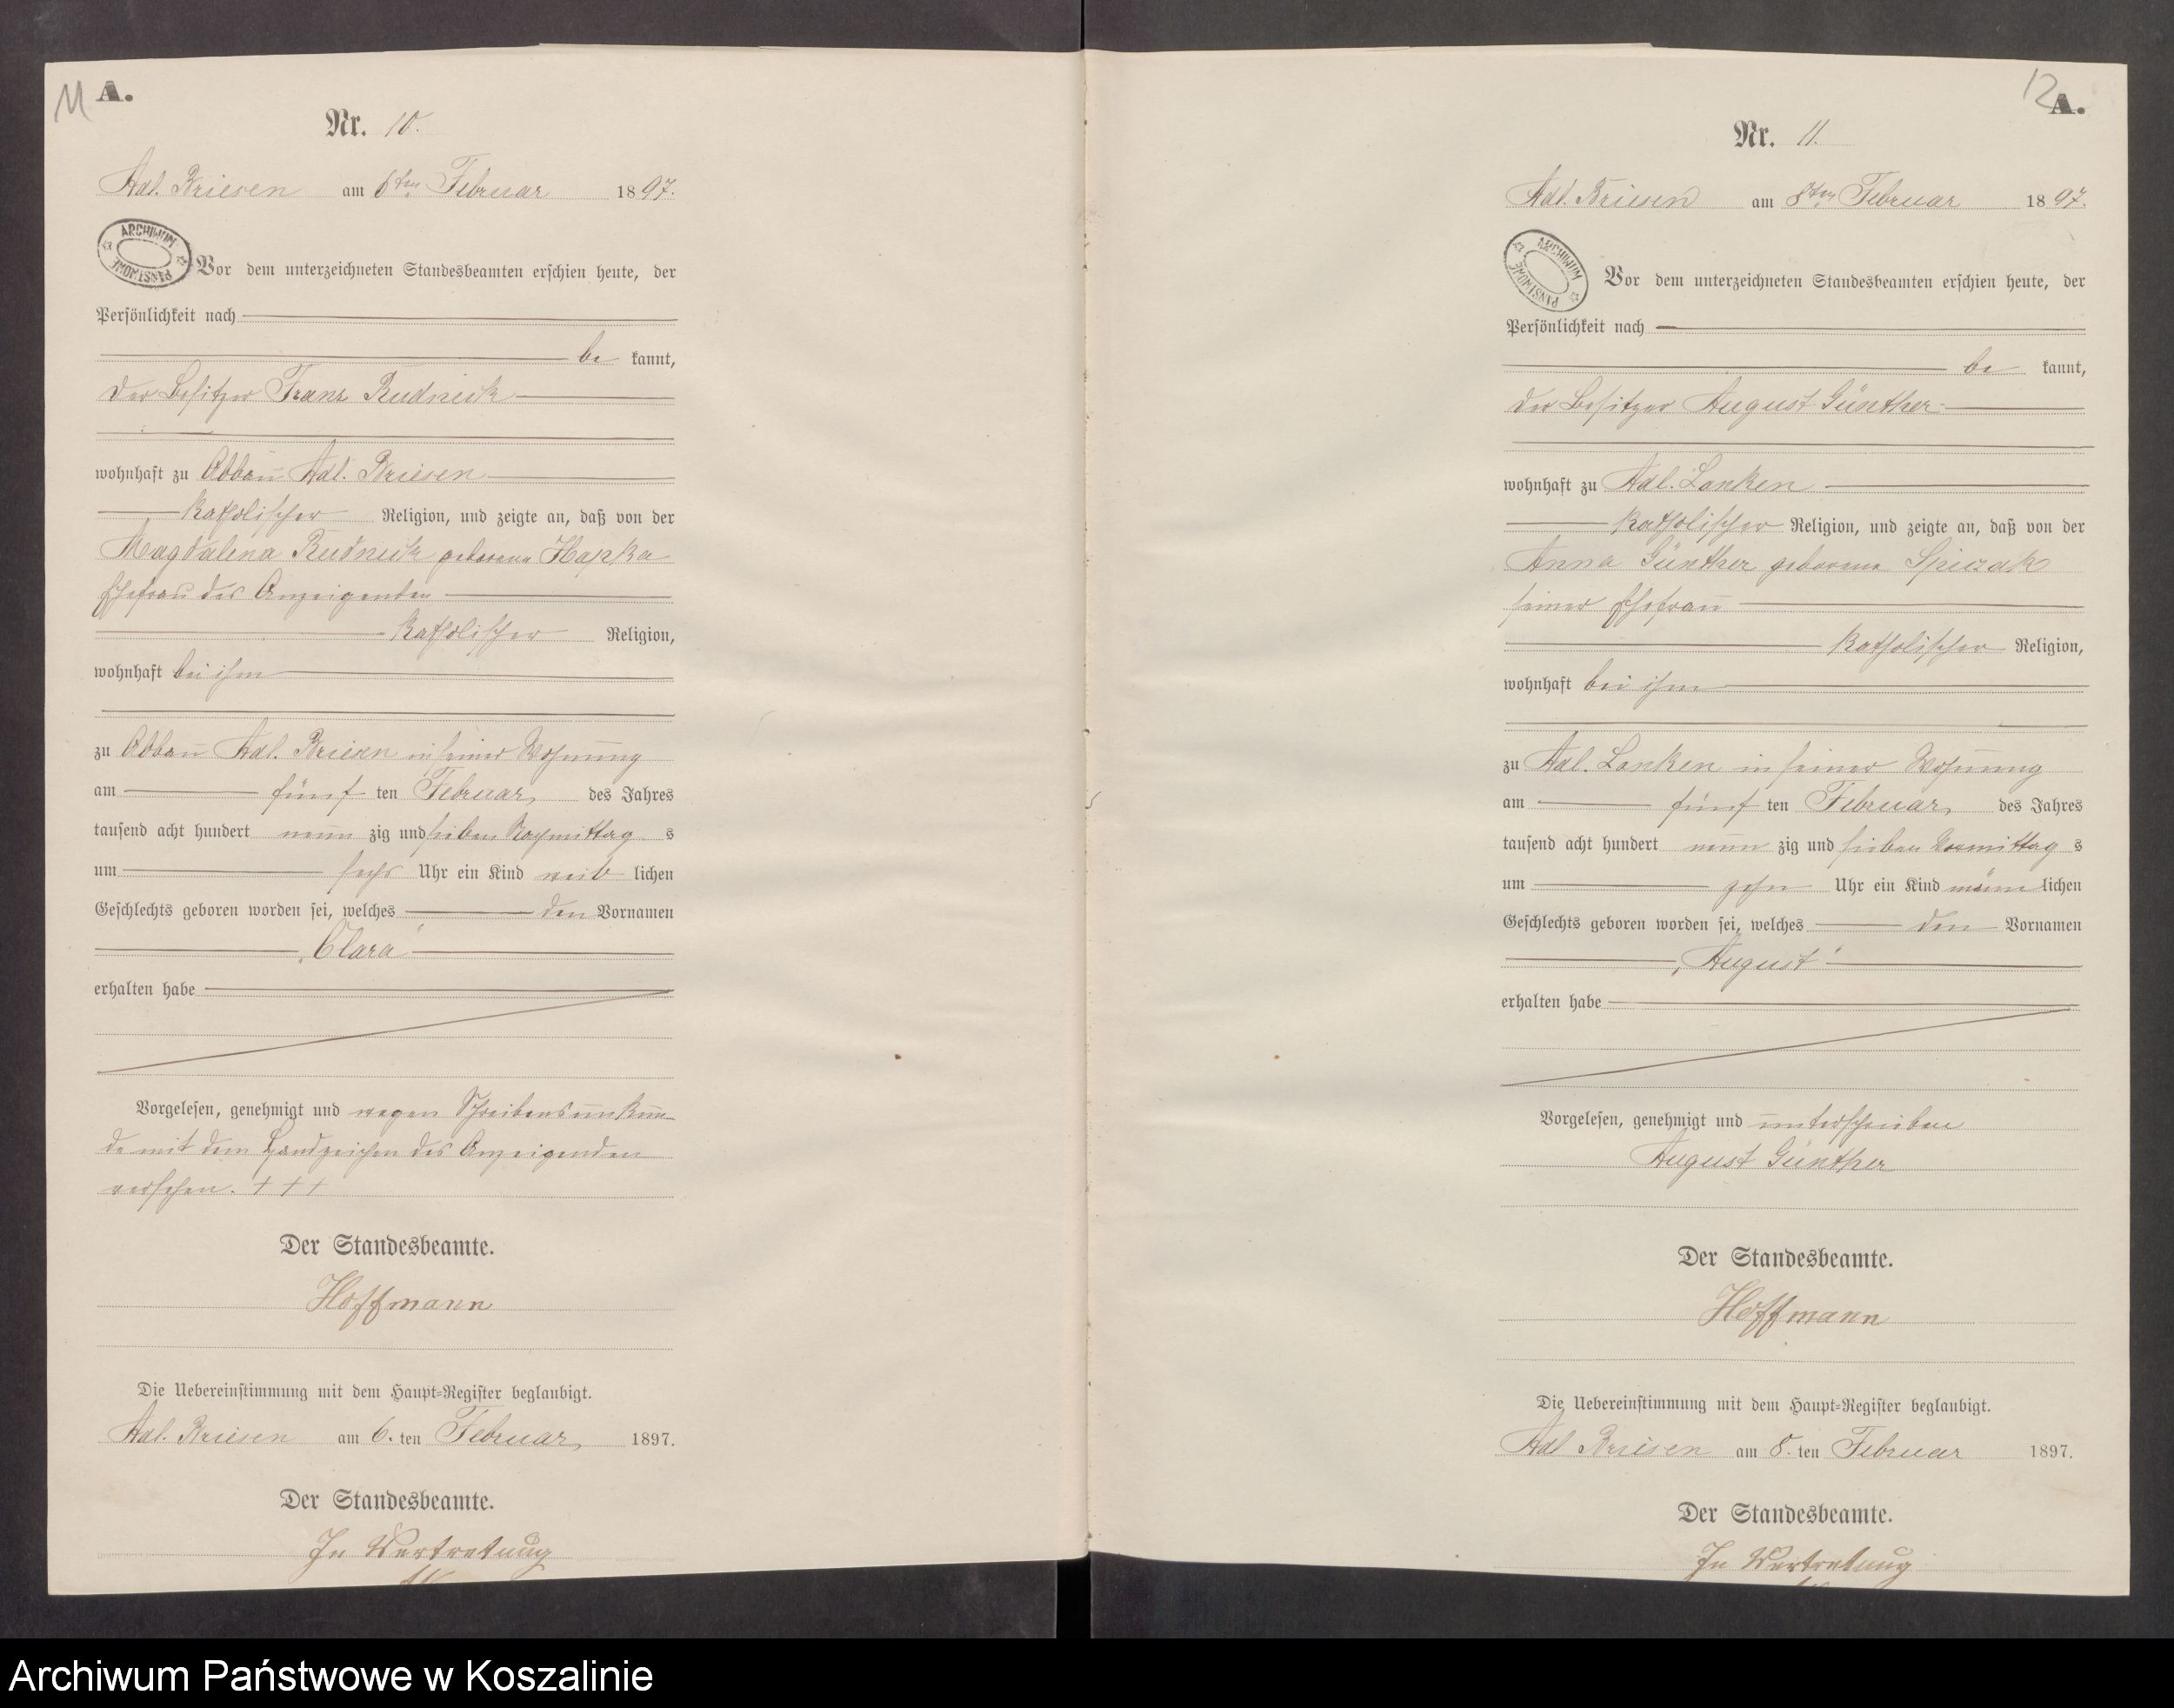 11
A.
Nr. 10.
Adl. Briesen am 6ten Februar 1897.
ARCHIWUM PAŃSTWOWE
Vor dem unterzeichneten Standesbeamten erschien heute, der
Persönlichkeit nach
be kannt,
der Besitzer Franz Rudnick
wohnhaft zu Abbau Adl. Briesen
katholischer Religion, und zeigte an, daß von der
Magdalena Rudnick geborene Hapka
Ehefrau des Anzeigenden
katholischer Religion,
wohnhaft bei ihm
zu Abbau Adl. Briesen in seiner Wohnung
am fünf ten Februar des Jahres
tausend acht hundert neun zig und sieben Nachmittag s
um sechs Uhr ein Kind weib lichen
Geschlechts geboren worden sei, welches den Vornamen
„Clara“
erhalten habe
Vorgelesen, genehmigt und wegen Schreibensunkun-
de mit dem Handzeichen des Anzeigenden
versehen. + + +
Der Standesbeamte.
Hoffmann
Die Uebereinstimmung mit dem Haupt-Register beglaubigt.
Adl. Briesen am 6. ten Februar 1897.
Der Standesbeamte.
In Vertretung
12
A.
Nr. 11.
Adl. Briesen am 8ten Februar 1897.
ARCHIWUM PAŃSTWOWE
Vor dem unterzeichneten Standesbeamten erschien heute, der
Persönlichkeit nach
be kannt,
der Besitzer August Günther
wohnhaft zu Adl. Lanken
katholischer Religion, und zeigte an, daß von der
Anna Günther geborene Spiczak
seiner Ehefrau
katholischer Religion,
wohnhaft bei ihm
zu Adl. Lanken in seiner Wohnung
am fünf ten Februar des Jahres
tausend acht hundert neun zig und sieben Vormittag s
um zehn Uhr ein Kind männ lichen
Geschlechts geboren worden sei, welches den Vornamen
„August“
erhalten habe
Vorgelesen, genehmigt und unterschrieben
August Günther
Der Standesbeamte.
Hoffmann
Die Uebereinstimmung mit dem Haupt-Register beglaubigt.
Adl. Briesen am 8. ten Februar 1897.
Der Standesbeamte.
In Vertretung
Archiwum Państwowe w Koszalinie